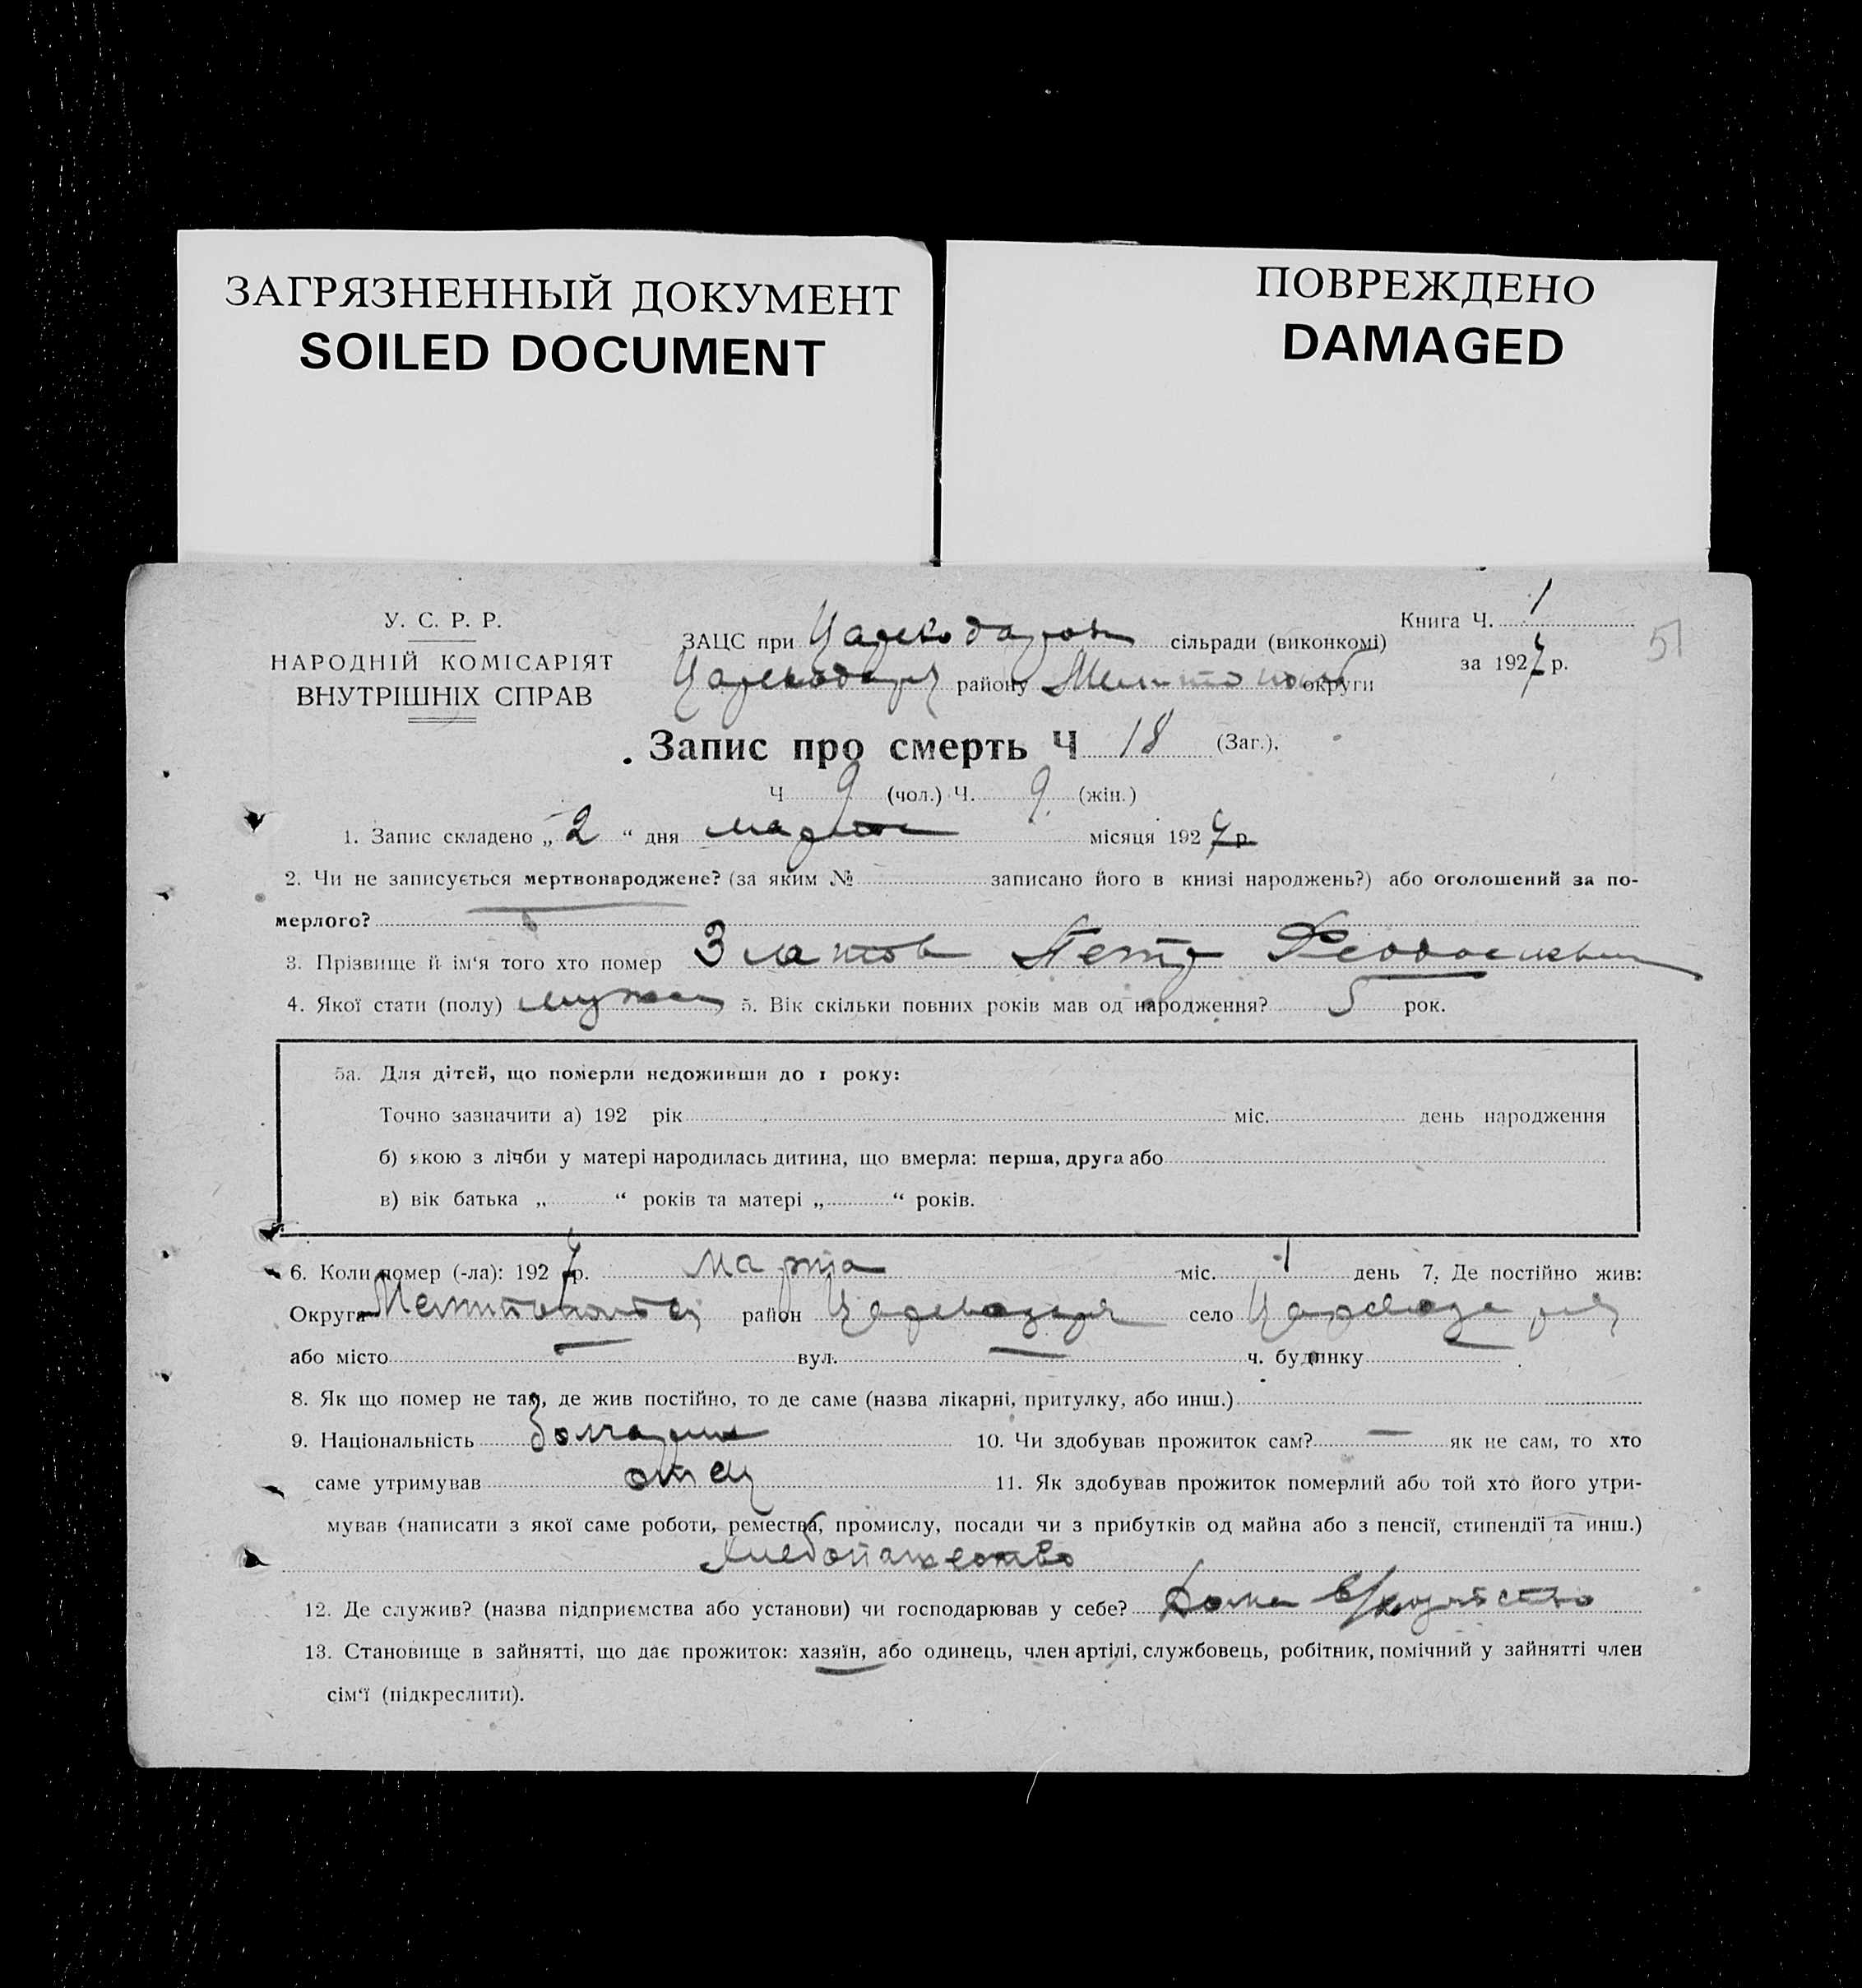 ЗАГРЯЗНЕННЫЙ ДОКУМЕНТ
SOILED DOCUMENT
ПОВРЕЖДЕНО
DAMAGED
У. С. Р. Р.
НАРОДНІЙ КОМІСАРІЯТ
ВНУТРІШНІХ СПРАВ
Книга Ч. 1
за 1927 р.
51
ЗАЦС при сільради (виконкомі)
району округи
Запис про смерть Ч 18 (Заг.).
Ч 9 (чол.) Ч. 9 (жін.)
1. Запис складено „ 2 “ дня марта місяця 1927 р.
2. Чи не записується мертвонароджене? (за яким № записано його в книзі народжень?) або оголошений за по-
мерлого?
3. Прізвище й ім‘я того хто помер Златов Петр Феодосиевич
4. Якої стати (полу) 5. Вік скільки повних років мав од народження? 5 рок.
5а. Для дітей, що померли недоживши до 1 року:
Точно зазначити а) 192 рік міс. день народження
б) якою з лічби у матері народилась дитина, що вмерла: перша, друга або
в) вік батька „ “ років та матері „ “ років.
6. Коли помер (-ла): 1927 р. марта міс. 1 день 7. Де постійно жив:
Округа район село
або місто вул. ч. будинку
8. Як що помер не там, де жив постійно, то де саме (назва лікарні, притулку, або инш.)
9. Національність болгарин 10. Чи здобував прожиток сам? — як не сам, то хто
саме утримував отец 11. Як здобував прожиток померлий або той хто його утри-
мував (написати з якої саме роботи, ремества, промислу, посади чи з прибутків од майна або з пенсії, стипендії та инш.)
хлебопашество
12. Де служив? (назва підприємства або установи) чи господарював у себе? Дома
13. Становище в зайнятті, що дає прожиток: хазяїн, або одинець, член артілі, службовець, робітник, помічний у зайнятті член
сім‘ї (підкреслити).